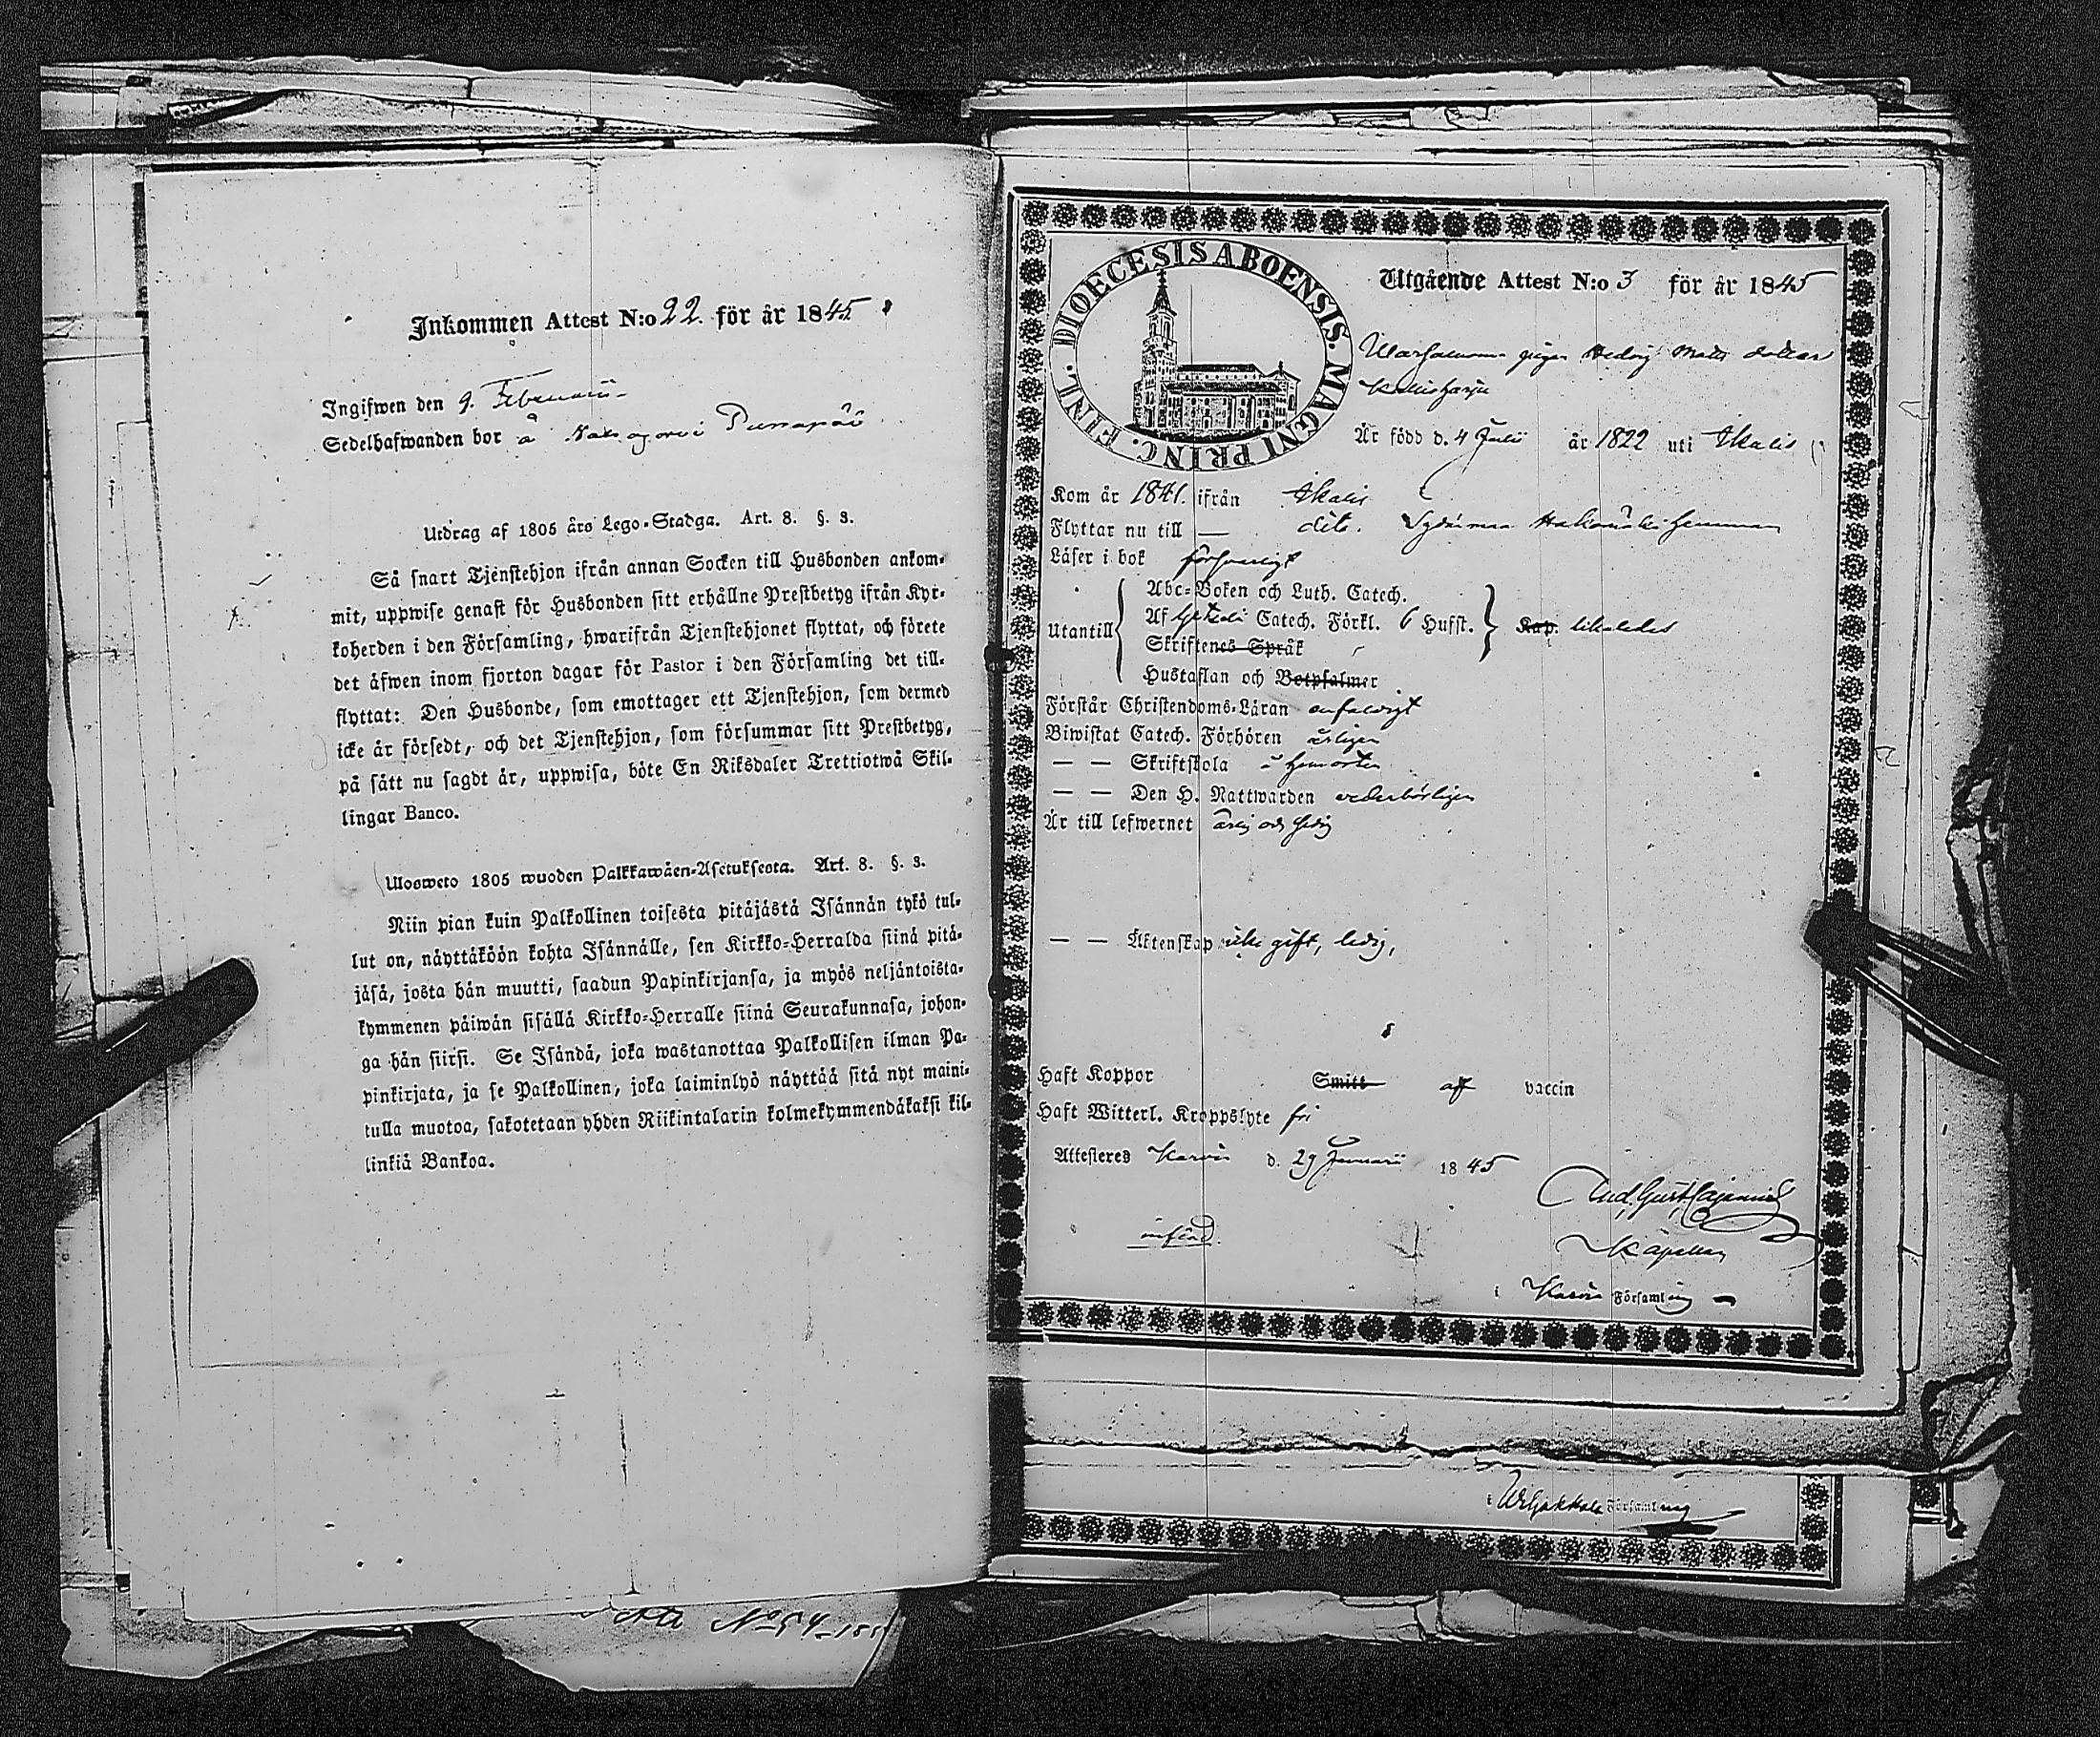 Inkommen Attest N:o 22. för år 1845
Ingifwen den 9. Februarii
Sedelhafwanden bor å
Utdrag af 1805 års Lego-Stadga. Art. 8. §. 3.
Så snart Tjenstehjon ifrån annan Socken till Husbonden ankom-
mit, uppwise genast för Husbonden sitt erhållne Prestbetyg ifrån Kyr-
koherden i den Församling, hwarifrån Tjenstehjonet flyttat, och förete
det åfwen inom fjorton dagar för Pastor i den Församling det till-
flyttat: Den Husbonde, som emottager ett Tjenstehjon, som dermed
icke är försedt, och det Tjenstehjon, som försummar sitt Prestbetyg,
på sätt nu sagdt är, uppwisa, böte En Riksdaler Trettiotwå Skil-
lingar Banco.
Ulosweto 1805 wuoden Palkkawäen-Asetuksesta. Art. 8. §. 3.
Niin pian kuin Palkollinen toisesta pitäjästä Isännän tykö tul-
lut on, näyttäköön kohta Isännälle, sen Kirkko-Herralda siinä pitä-
jäsä, josta hän muutti, saadun Papinkirjansa, ja myös neljäntoista-
kymmenen päiwän sisällä Kirkko-Herralle siinä Seurakunnasa, johon-
ga hän siirsi. Se Isändä, joka wastanottaa Palkollisen ilman Pa-
pinkirjata, ja se Palkollinen, joka laiminlyö näyttää sitä nyt maini-
tulla muotoa, sakotetaan yhden Riikintalarin kolmekymmendäkaksi kil-
linkiä Bankoa.
N:o 54
DIOECESIS ABOENSIS. MAGNI PRINC. FINL.
Utgående Attest N:o 3 för år 1845
pigan Hedvig Matts dotter
Är född d. 4 Julii år 1822 uti Ikalis
Kom år 1841. ifrån Ikalis
Flyttar nu till — dito.
Läser i bok försvarligt
Utantill
Abc-Boken och Luth. Catech.
Af Catech. Förkl. 6 Husst. Kap. likaledes
Skriftenes Språk
Hustaflan och Botpsalmer
Förstår Christendoms-Läran enfaldigt
Biwistat Catech. Förhören årligen
— — Skriftskola i hemorten
— — Den H. Nattwarden vederbörligen
Är till lefwernet ärlig och hedig
— — Äktenskap icke gift, ledig,
Haft Koppor Smitt af vaccin
Haft Witterl. Kroppslyte fri
Attesteras Karvia d. 29 Januarii 1845
And. Gust. Cajanus
Kapellan
införd.
i Karvia Församling
i Församling